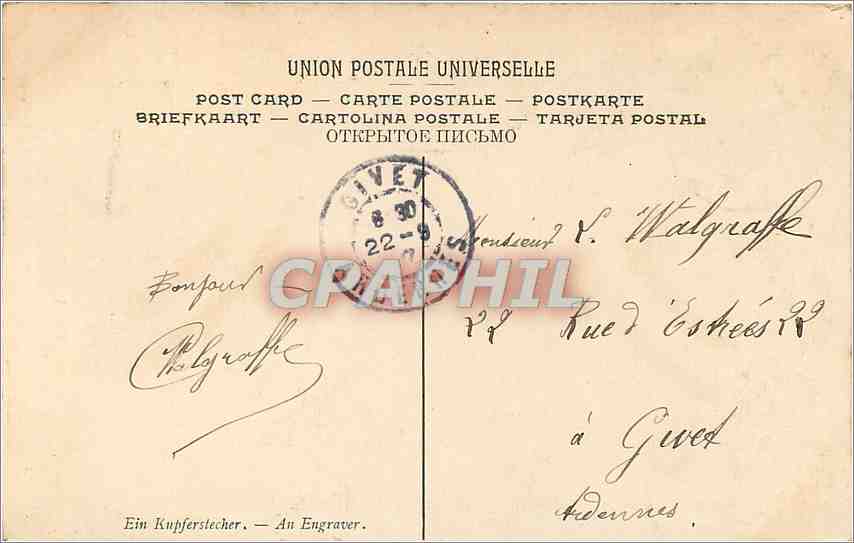 UNION POSTALE UNIVERSELLE
POST CARD — CARTE POSTALE — POSTKARTE
BRIEFKAART — CARTOLINA POSTALE — TARJETA POSTAL
ОТКРЫТОЕ ПИСЬМО
GIVET
8 30
22 - 9
ARDENNES
CPAPHIL
Bonjour
Walgraffe
Monsieur L. Walgraffe
22 Rue d'Estrées 22
à Givet
Ardennes
Ein Kupferstecher. — An Engraver.